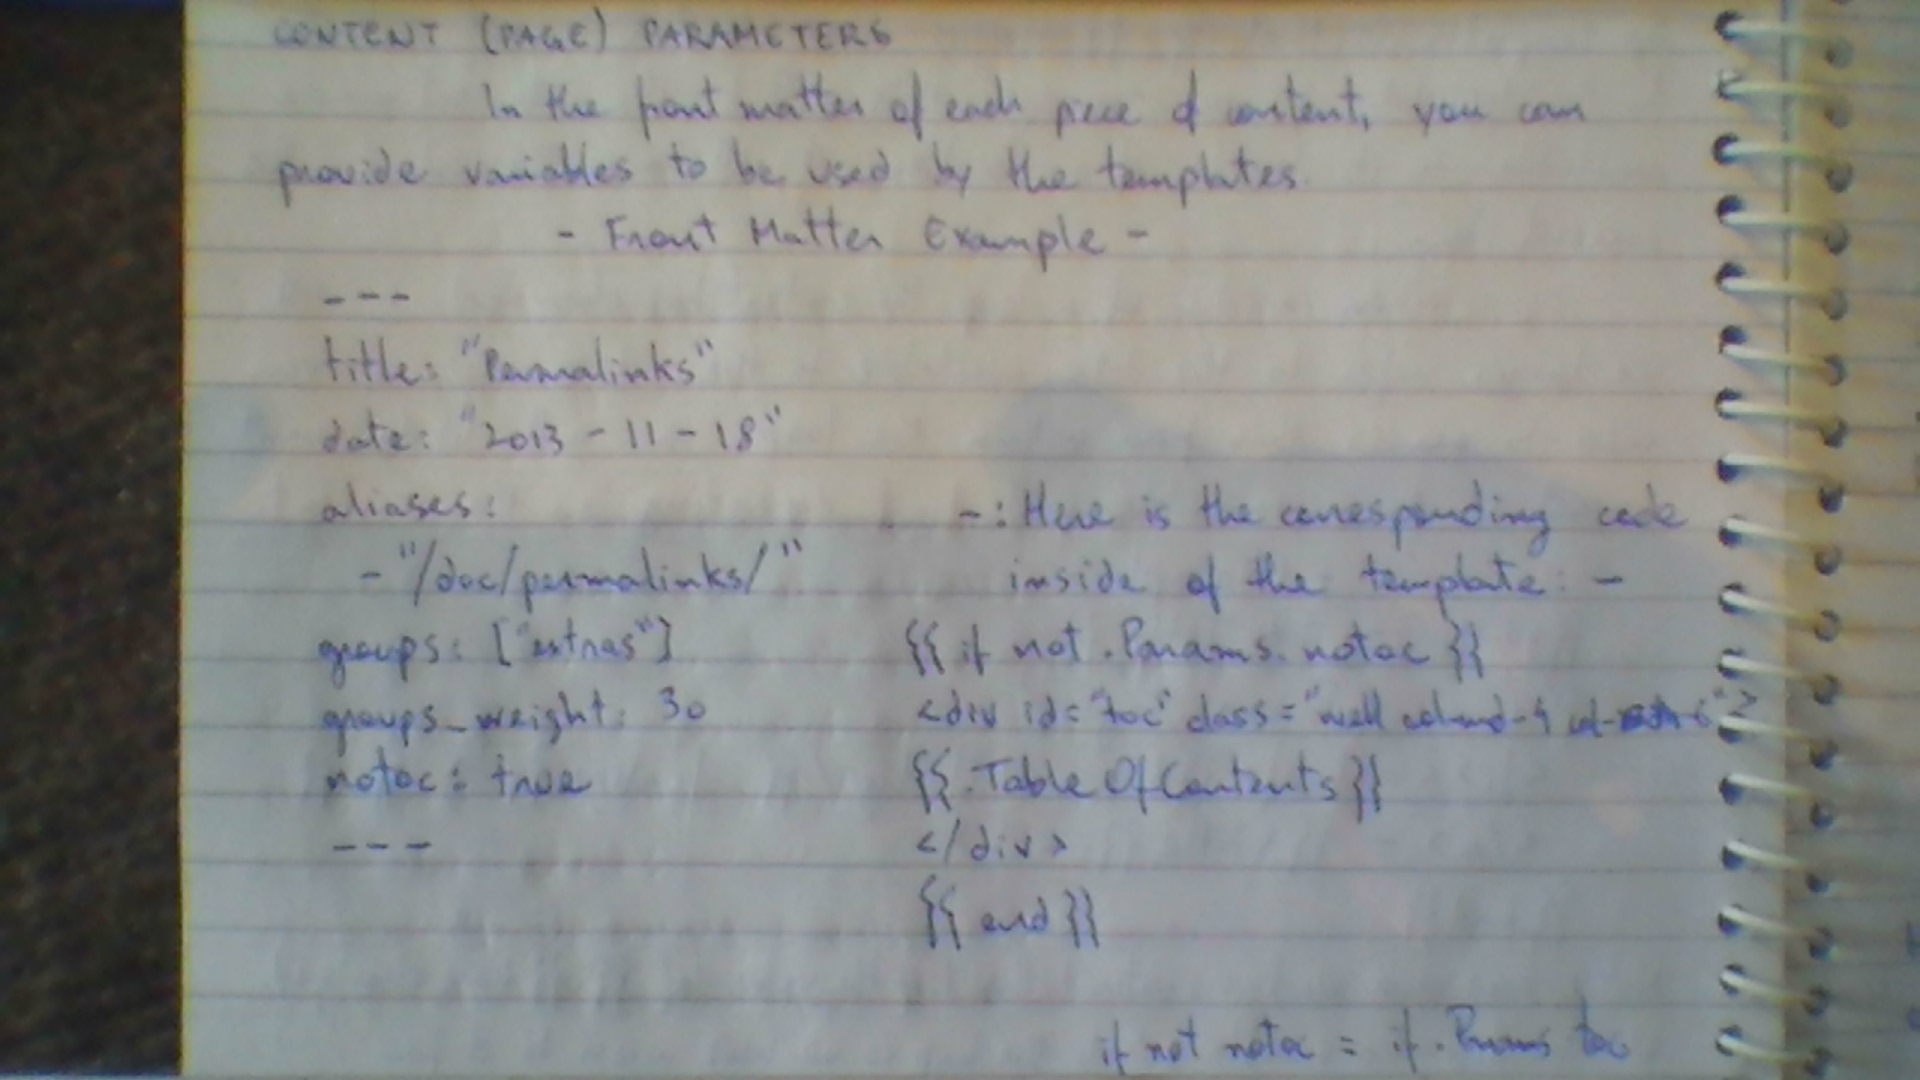 CONTENT (PAGE) PARAMETERS
In the front matter of each piece of content, you can
provide variables to be used by the templates.
- Front Matter Example -
---
title: "Permalinks"
date: "2013-11-18"
aliases:
- "/doc/permalinks/"
groups: ["extras"]
groups_weight: 30
notoc: true
---
-: Here is the corresponding code
inside of the template: -
{{ if not .Params.notoc }}
<div id="toc" class="well col-md-4
{{ .TableOfContents }}
</div>
{{ end }}
if not notoc = if .Params toc